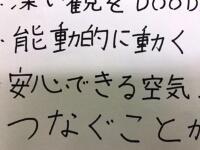 深い観を DOOD
・能動的に動く
・安心できる空気
つなぐことか